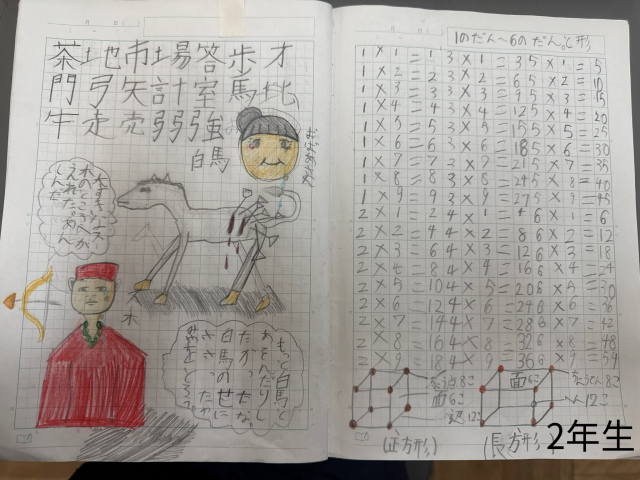 茶地市場答歩才
門弓矢計室馬地
午走売弱強
白馬
おばあさん
もっと白馬と
あそんだりし
たかったな。
白馬のせに
ささったか
1のだん～6のだん。と形
1×1=1 3×1=3 5×1=5
1×2=2 3×2=6 5×2=10
1×3=3 3×3=9 5×3=15
1×4=4 3×4=12 5×4=20
1×5=5 3×5=15 5×5=25
1×6=6 3×6=18 5×6=30
1×7=7 3×7=21 5×7=35
1×8=8 3×8=24 5×8=40
1×9=9 3×9=27 5×9=45
2×1=2 4×1=4 6×1=6
2×2=4 4×2=8 6×2=12
2×3=6 4×3=12 6×3=18
2×4=8 4×4=16 6×4=24
2×5=10 4×5=20 6×5=30
2×6=12 4×6=24 6×6=36
2×7=14 4×7=28 6×7=42
2×8=16 4×8=32 6×8=48
2×9=18 4×9=36 6×9=54
面6こ
12こ
(正方形)
面6こ
ちょうてん8こ
へん12こ
(長方形)
2年生